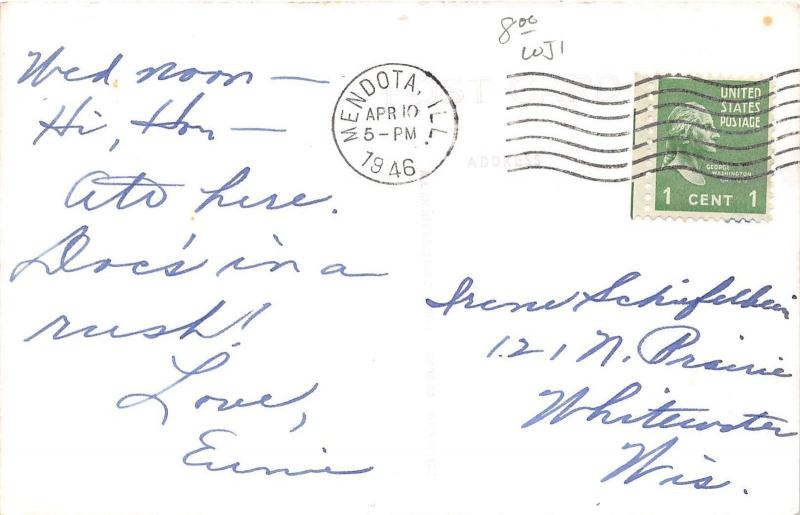 Wed noon —
Hi, Hon —
Ate here.
Doc's in a
rush!
Love,
Eunie
8 00
WJ1
MENDOTA, ILL.
APR 10
5-PM
1946
ADDRESS
UNITED
STATES
POSTAGE
GEORGE
WASHINGTON
1 CENT 1
Irene Schiefelbein
121 N. Prairie
Whitewater
Wis.